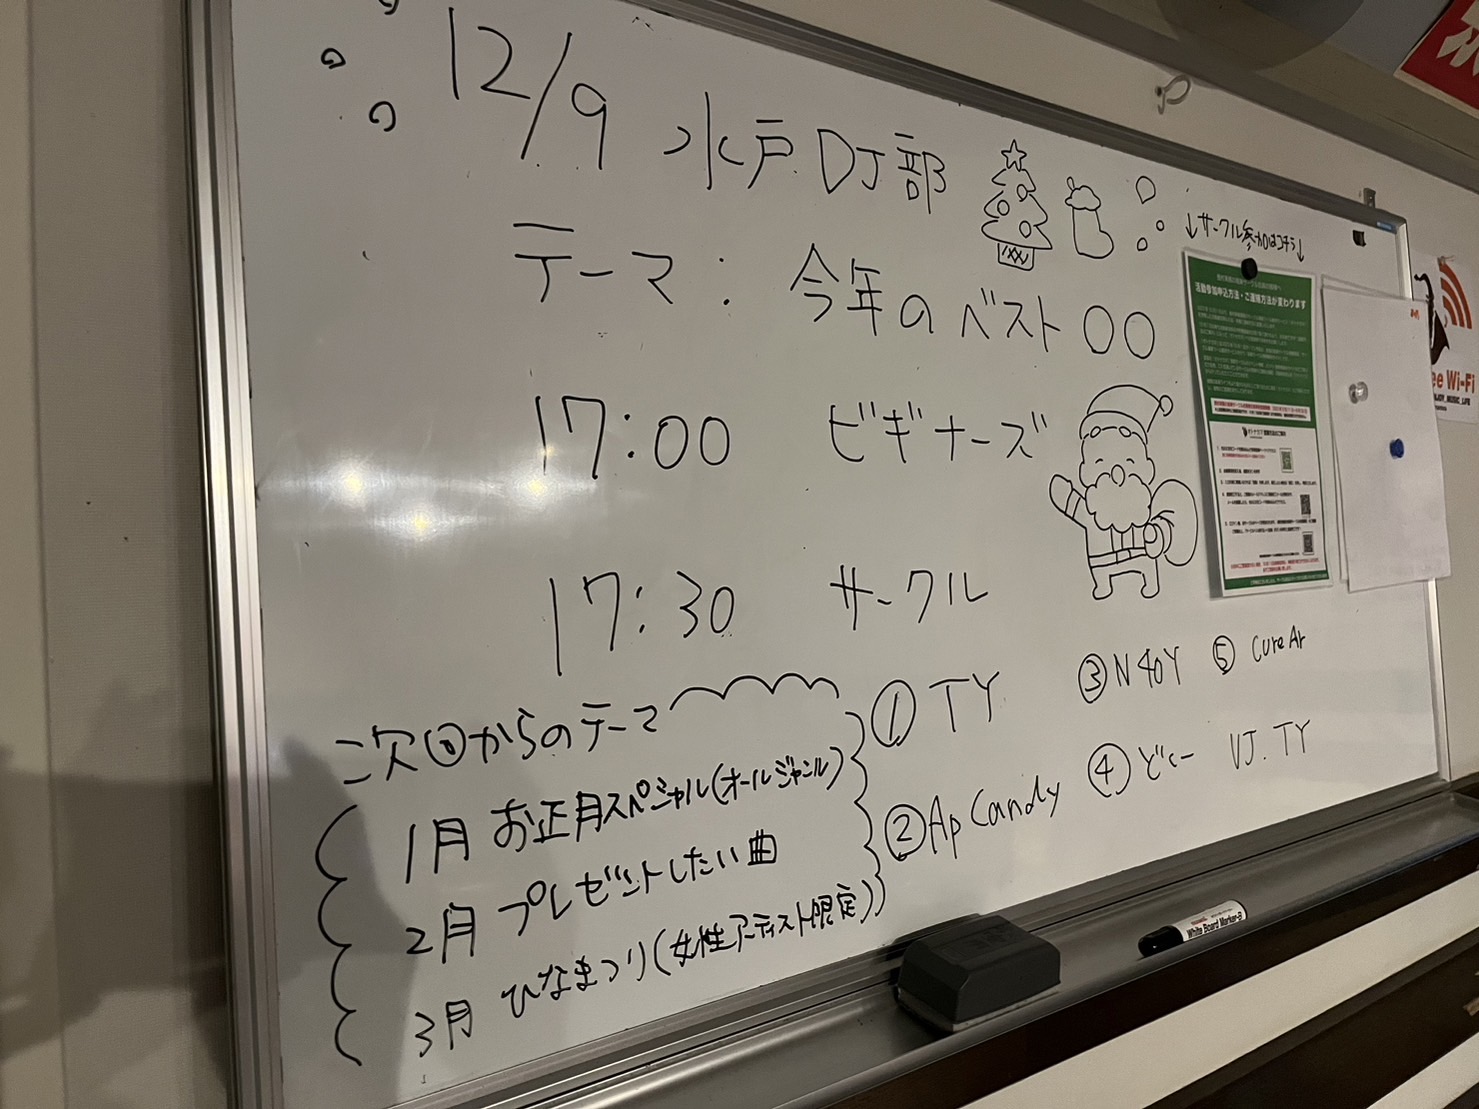 12/9 水戸DJ部
テーマ：今年のベスト〇〇
↓サークル参加はコチラ↓
17:00 ビギナーズ
17:30 サークル
①TY
②Ap Candy
③N40Y
④どくー
⑤CureAr
VJ.TY
次回からのテーマ
1月 お正月スペシャル(オールジャンル)
2月 プレゼントしたい曲
3月 ひなまつり(女性アーティスト限定)
活動参加申込方法・ご連絡方法が変わります
ee Wi-Fi
White Board Marker-B